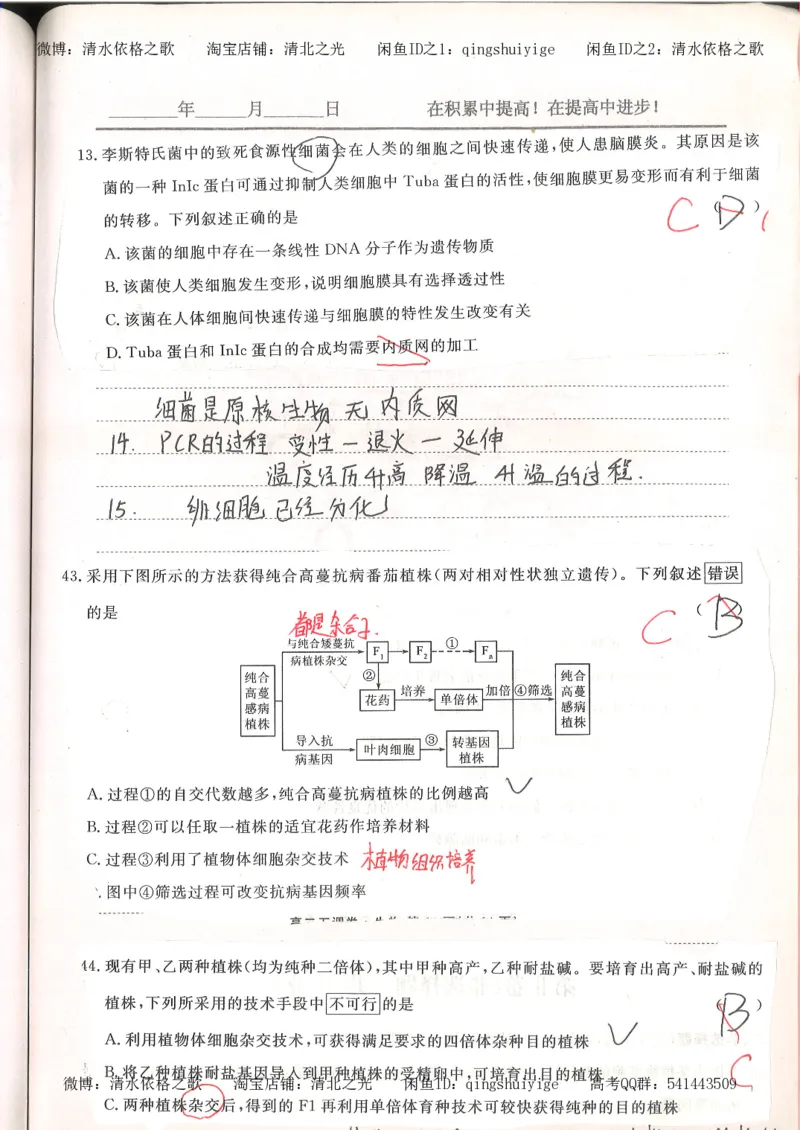 微博：清水依格之歌 淘宝店铺：清北之光 闲鱼ID之1：qingshuiyige 闲鱼ID之2：清水依格之歌
______年______月______日 在积累中提高！在提高中进步！
13. 李斯特氏菌中的致死食源性细菌会在人类的细胞之间快速传递，使人患脑膜炎。其原因是该
菌的一种 InIc 蛋白可通过抑制人类细胞中 Tuba 蛋白的活性，使细胞膜更易变形而有利于细菌
的转移。下列叙述正确的是 C （D）
A. 该菌的细胞中存在一条线性 DNA 分子作为遗传物质
B. 该菌使人类细胞发生变形，说明细胞膜具有选择透过性
C. 该菌在人体细胞间快速传递与细胞膜的特性发生改变有关
D. Tuba 蛋白和 InIc 蛋白的合成均需要内质网的加工
细菌是原核生物 无内质网
14. PCR的过程 变性 — 退火 — 延伸
温度经历升高 降温 升温的过程.
15. 细胞已经分化
43. 采用下图所示的方法获得纯合高蔓抗病番茄植株（两对相对性状独立遗传）。下列叙述错误
的是 C （B）
都是杂合子.
与纯合矮蔓抗
病植株杂交
F1 F2 ① Fn
纯合
高蔓
感病
植株
②
花药 培养 单倍体 加倍 ④筛选
纯合
高蔓
感病
植株
导入抗
病基因
叶肉细胞 ③ 转基因
植株
A. 过程①的自交代数越多，纯合高蔓抗病植株的比例越高
B. 过程②可以任取一植株的适宜花药作培养材料
C. 过程③利用了植物体细胞杂交技术 植物组织培养
. 图中④筛选过程可改变抗病基因频率
44. 现有甲、乙两种植株（均为纯种二倍体），其中甲种高产，乙种耐盐碱。要培育出高产、耐盐碱的
植株，下列所采用的技术手段中不可行的是 （B）
A. 利用植物体细胞杂交技术，可获得满足要求的四倍体杂种目的植株
B. 将乙种植株耐盐基因导入到甲种植株的受精卵中，可培育出目的植株 C
微博：清水依格之歌 淘宝店铺：清北之光 闲鱼ID：qingshuiyige 高考QQ群：541443509
C. 两种植株杂交后，得到的 F1 再利用单倍体育种技术可较快获得纯种的目的植株